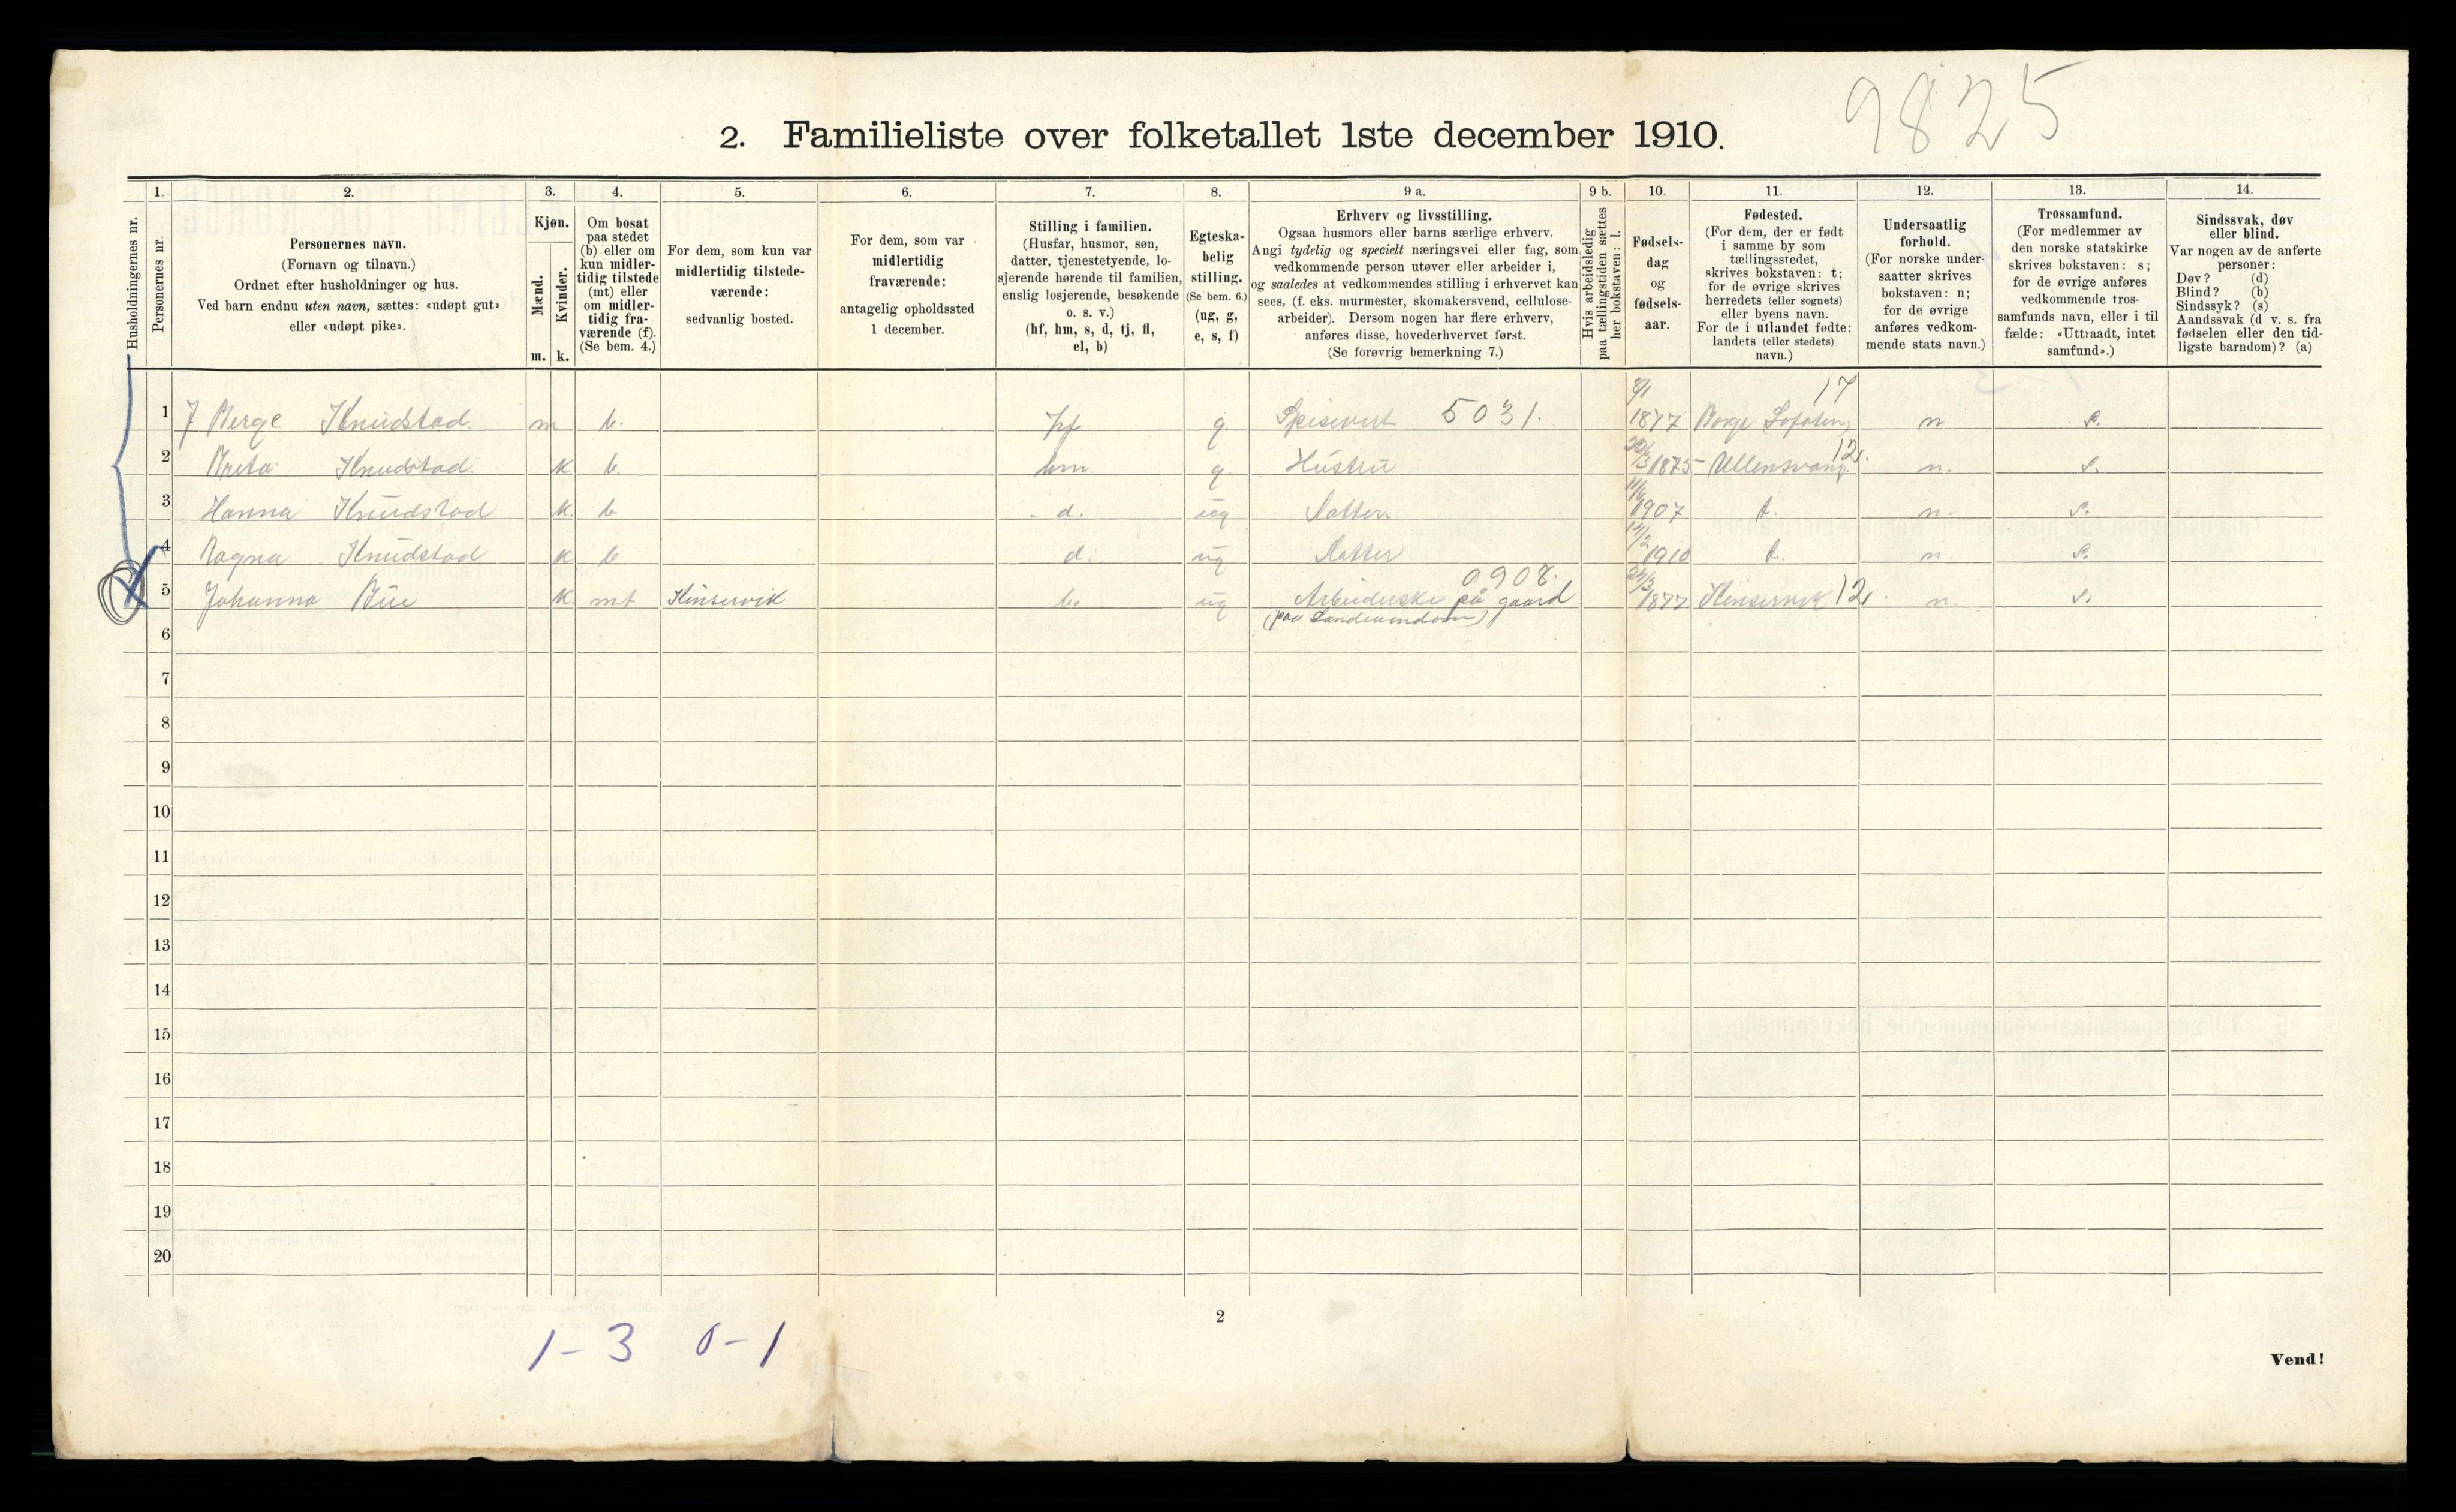 9825
2. Familieliste over folketallet 1ste december 1910.
1. 2. 3. 4. 5. 6. 7. 8. 9 a. 9 b. 10. 11. 12. 13. 14.
Husholdningernes nr.
Personernes nr.
Personernes navn.
(Fornavn og tilnavn.)
Ordnet efter husholdninger og hus.
Ved barn endnu uten navn, sættes: «udøpt gut»
eller «udøpt pike».
Kjøn.
Mænd.
Kvinder.
m. k.
Om bosat
paa stedet
(b) eller om
kun midler-
tidig tilstede
(mt) eller
om midler-
tidig fra-
værende (f).
(Se bem. 4.)
For dem, som kun var
midlertidig tilstede-
værende:
sedvanlig bosted.
For dem, som var
midlertidig
fraværende:
antagelig opholdssted
1 december.
Stilling i familien.
(Husfar, husmor, søn,
datter, tjenestetyende, lo-
sjerende hørende til familien,
enslig losjerende, besøkende
o. s. v.)
(hf, hm, s, d, tj, fl,
el, b)
Egteska-
belig
stilling.
(Se bem. 6.)
(ug, g,
e, s, f)
Erhverv og livsstilling.
Ogsaa husmors eller barns særlige erhverv.
Angi tydelig og specielt næringsvei eller fag, som
vedkommende person utøver eller arbeider i,
og saaledes at vedkommendes stilling i erhvervet kan
sees, (f. eks. murmester, skomakersvend, cellulose-
arbeider). Dersom nogen har flere erhverv,
anføres disse, hovederhvervet først.
(Se forøvrig bemerkning 7.)
Hvis arbeidsledig
paa tællingstiden sættes
her bokstaven: l.
Fødsels-
dag
og
fødsels-
aar.
Fødested.
(For dem, der er født
i samme by som
tællingsstedet,
skrives bokstaven: t;
for de øvrige skrives
herredets (eller sognets)
eller byens navn.
For de i utlandet fødte:
landets (eller stedets)
navn.)
Undersaatlig
forhold.
(For norske under-
saatter skrives
bokstaven: n;
for de øvrige
anføres vedkom-
mende stats navn.)
Trossamfund.
(For medlemmer av
den norske statskirke
skrives bokstaven: s;
for de øvrige anføres
vedkommende tros-
samfunds navn, eller i til
fælde: «Uttraadt, intet
samfund».)
Sindssvak, døv
eller blind.
Var nogen av de anførte
personer:
Døv? (d)
Blind? (b)
Sindssyk? (s)
Aandssvak (d v. s. fra
fødselen eller den tid-
ligste barndom)? (a)
1 J Berge Knudstad. m b. hf g. Spisevert 5031. 8/1 1877 Borge Lofoten 17 n s.
2 Brita Knudstad. k b. hm g. Hustru 1875 Ullensvang. 12. n. s.
3 Hanna Knudstad k. b d. ug Datter 11/6 1907 t. n. s.
4 Ragna Knudstad k b d. ug Datter 1910 t. n. s.
5 Johanna Bue k. mt Kinservik b. ug Arbeiderske på gaard 0908. 1877 Kinservik 12. n. s.
6
7
8
9
10
11
12
13
14
15
16
17
18
19
20
2
1-3 0-1
Vend!